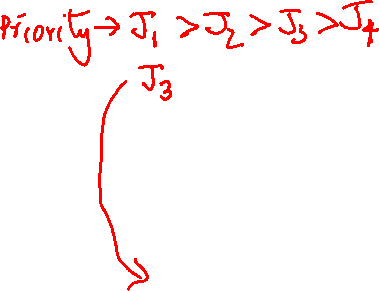 Priority → J1 > J2 > J3 > J4
J3